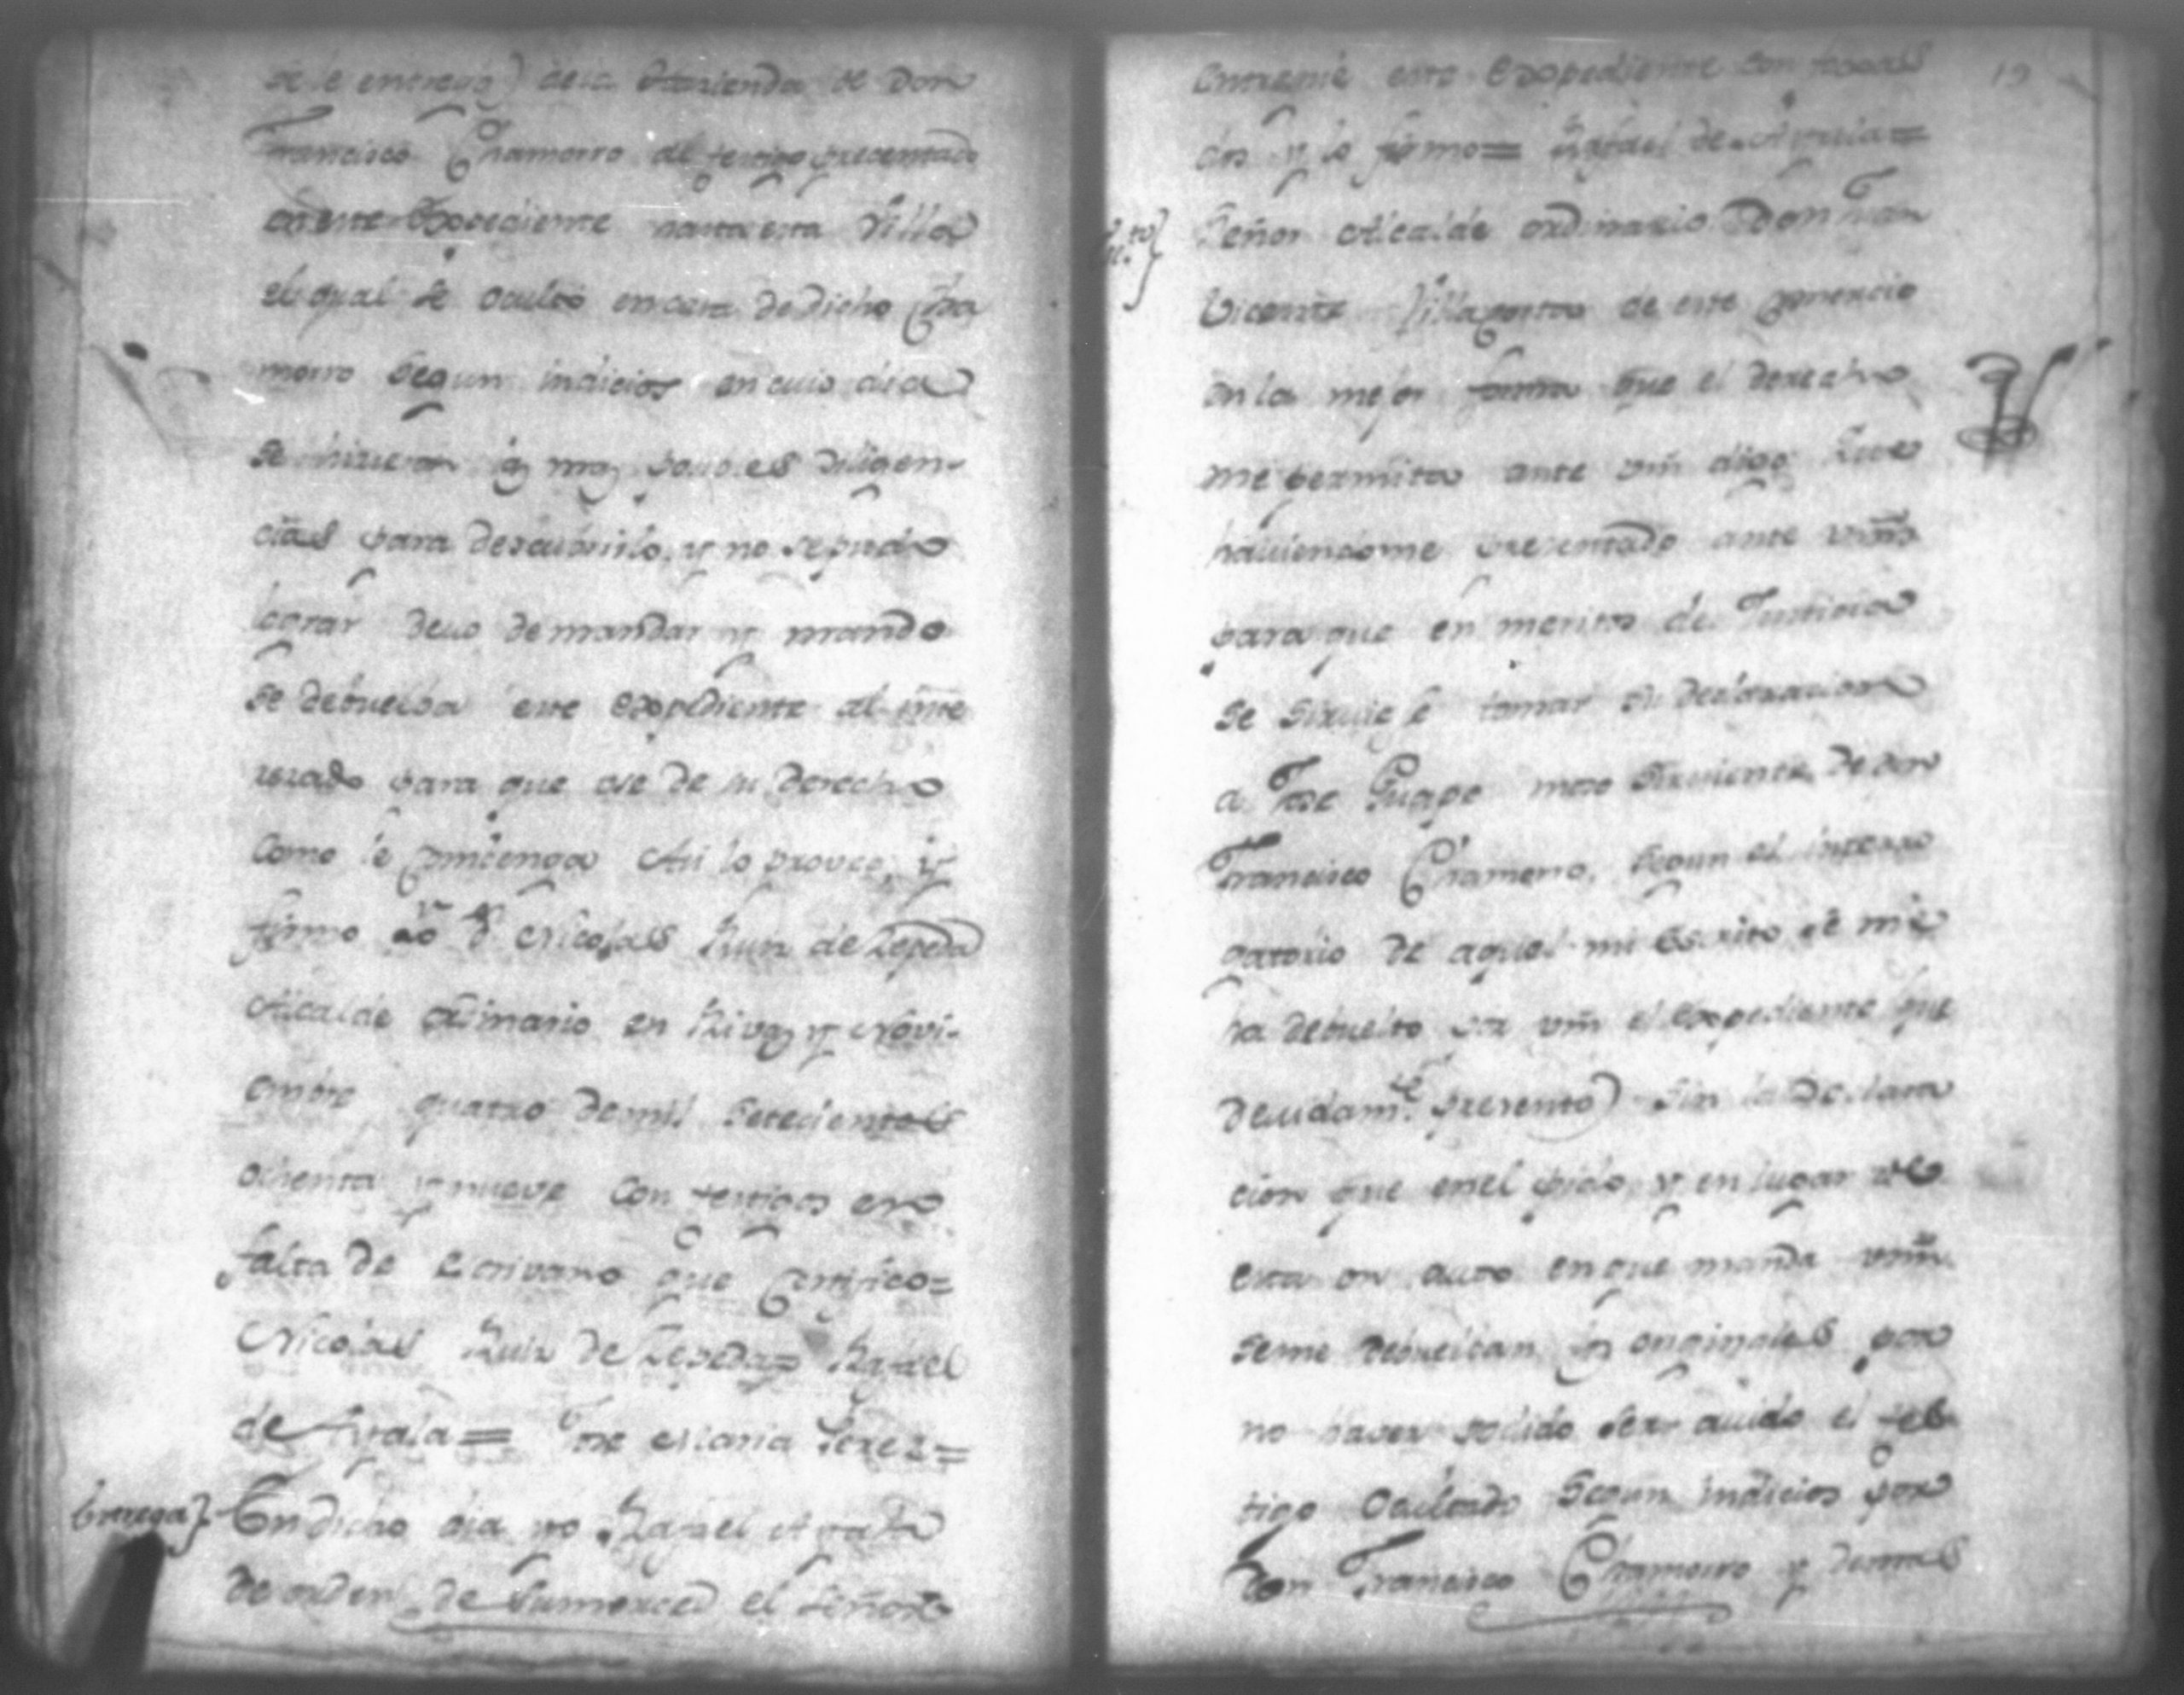 se le entregó) de la Hazienda de Don
Francisco Chamorro al testigo presentado
en este Expediente hasta esta Villa
el qual se ocultó en casa de dicho Cha
morro segun indicios en cuio dia
se hicieron las mas posibles diligen-
cias para descubrirlo, y no se pudo
lograr devo de mandar y mando
se debuelva este expediente al inte
resado para que use de su derecho
Como le convenga Asi lo proveo, y
firmo yo Dn Nicolas Ruiz de Zepeda
Alcalde ordinario en Rivas y Novi-
embre quatro de mil setecientos
ochenta y nueve Con testigos en
falta de Escrivano que Certifico=
Nicolas Ruiz de Zepeda= Rafael
de Ayala= Jose Maria Perez=
Entrega} En dicho dia yo Rafael Ayala
de orden de Su merced el Señor
19
Entregué este Expediente con
y lo firmo= Rafael de Ayala=
Señor Alcalde ordinario Don Juan
Vicente Villagontes de este Comercio
en la mejor forma que el derecho
me permita ante vm̃ digo Que
haviendome presentado ante vm̃
para que en meritos de Justicia
se sirviese tomar su declaracion
a Jose Guape moso sirviente de don
Francisco Chamorro, segun el interro
gatorio de aquel mi Escrito se me
ha debuelto por vm̃ el Expediente que
devidamte. presentó) sin la declara
cion que en el pido, y en lugar de
esta un auto en que manda vm̃
se me debuelban los originales por
no haver podido ser avido el tes
tigo Ocultado Segun indicios por
Don Francisco Chamorro y demas